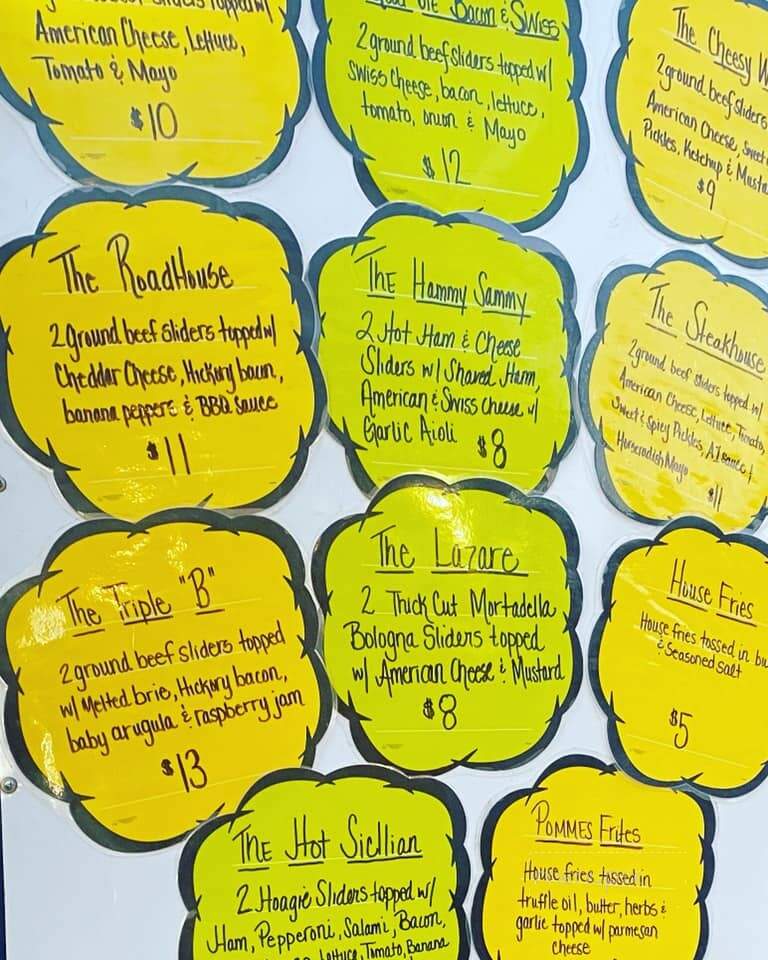 American Cheese, Lettuce,
Tomato & Mayo
$10
Bacon & Swiss
2 ground beef sliders topped w/
Swiss Cheese, bacon, lettuce,
tomato, onion & Mayo
$12
The Cheesy
2 ground beef sliders
American Cheese, Sweet
Pickles, Ketchup &
$9
The RoadHouse
2 ground beef sliders topped w/
Cheddar Cheese, Hickory bacon,
banana peppers & BBQ Sauce
$11
The Hammy Sammy
2 Hot Ham & Cheese
Sliders w/ Shaved Ham,
American & Swiss cheese w/
Garlic Aioli $8
The Steakhouse
2 ground beef sliders topped w/
American Cheese, Lettuce, Tomato,
Sweet & Spicy Pickles, A1 sauce &
Horseradish Mayo
$11
The Triple "B"
2 ground beef sliders topped
w/ Melted brie, Hickory bacon,
baby arugula & raspberry jam
$13
The Lazare
2 Thick Cut Mortadella
Bologna Sliders topped
w/ American Cheese & Mustard
$8
House Fries
House fries tossed in
& Seasoned salt
$5
The Hot Sicilian
2 Hoagie Sliders topped w/
Ham, Pepperoni, Salami, Bacon,
Lettuce, Tomato, Banana
Pommes Frites
House fries tossed in
truffle oil, butter, herbs &
garlic topped w/ parmesan
cheese